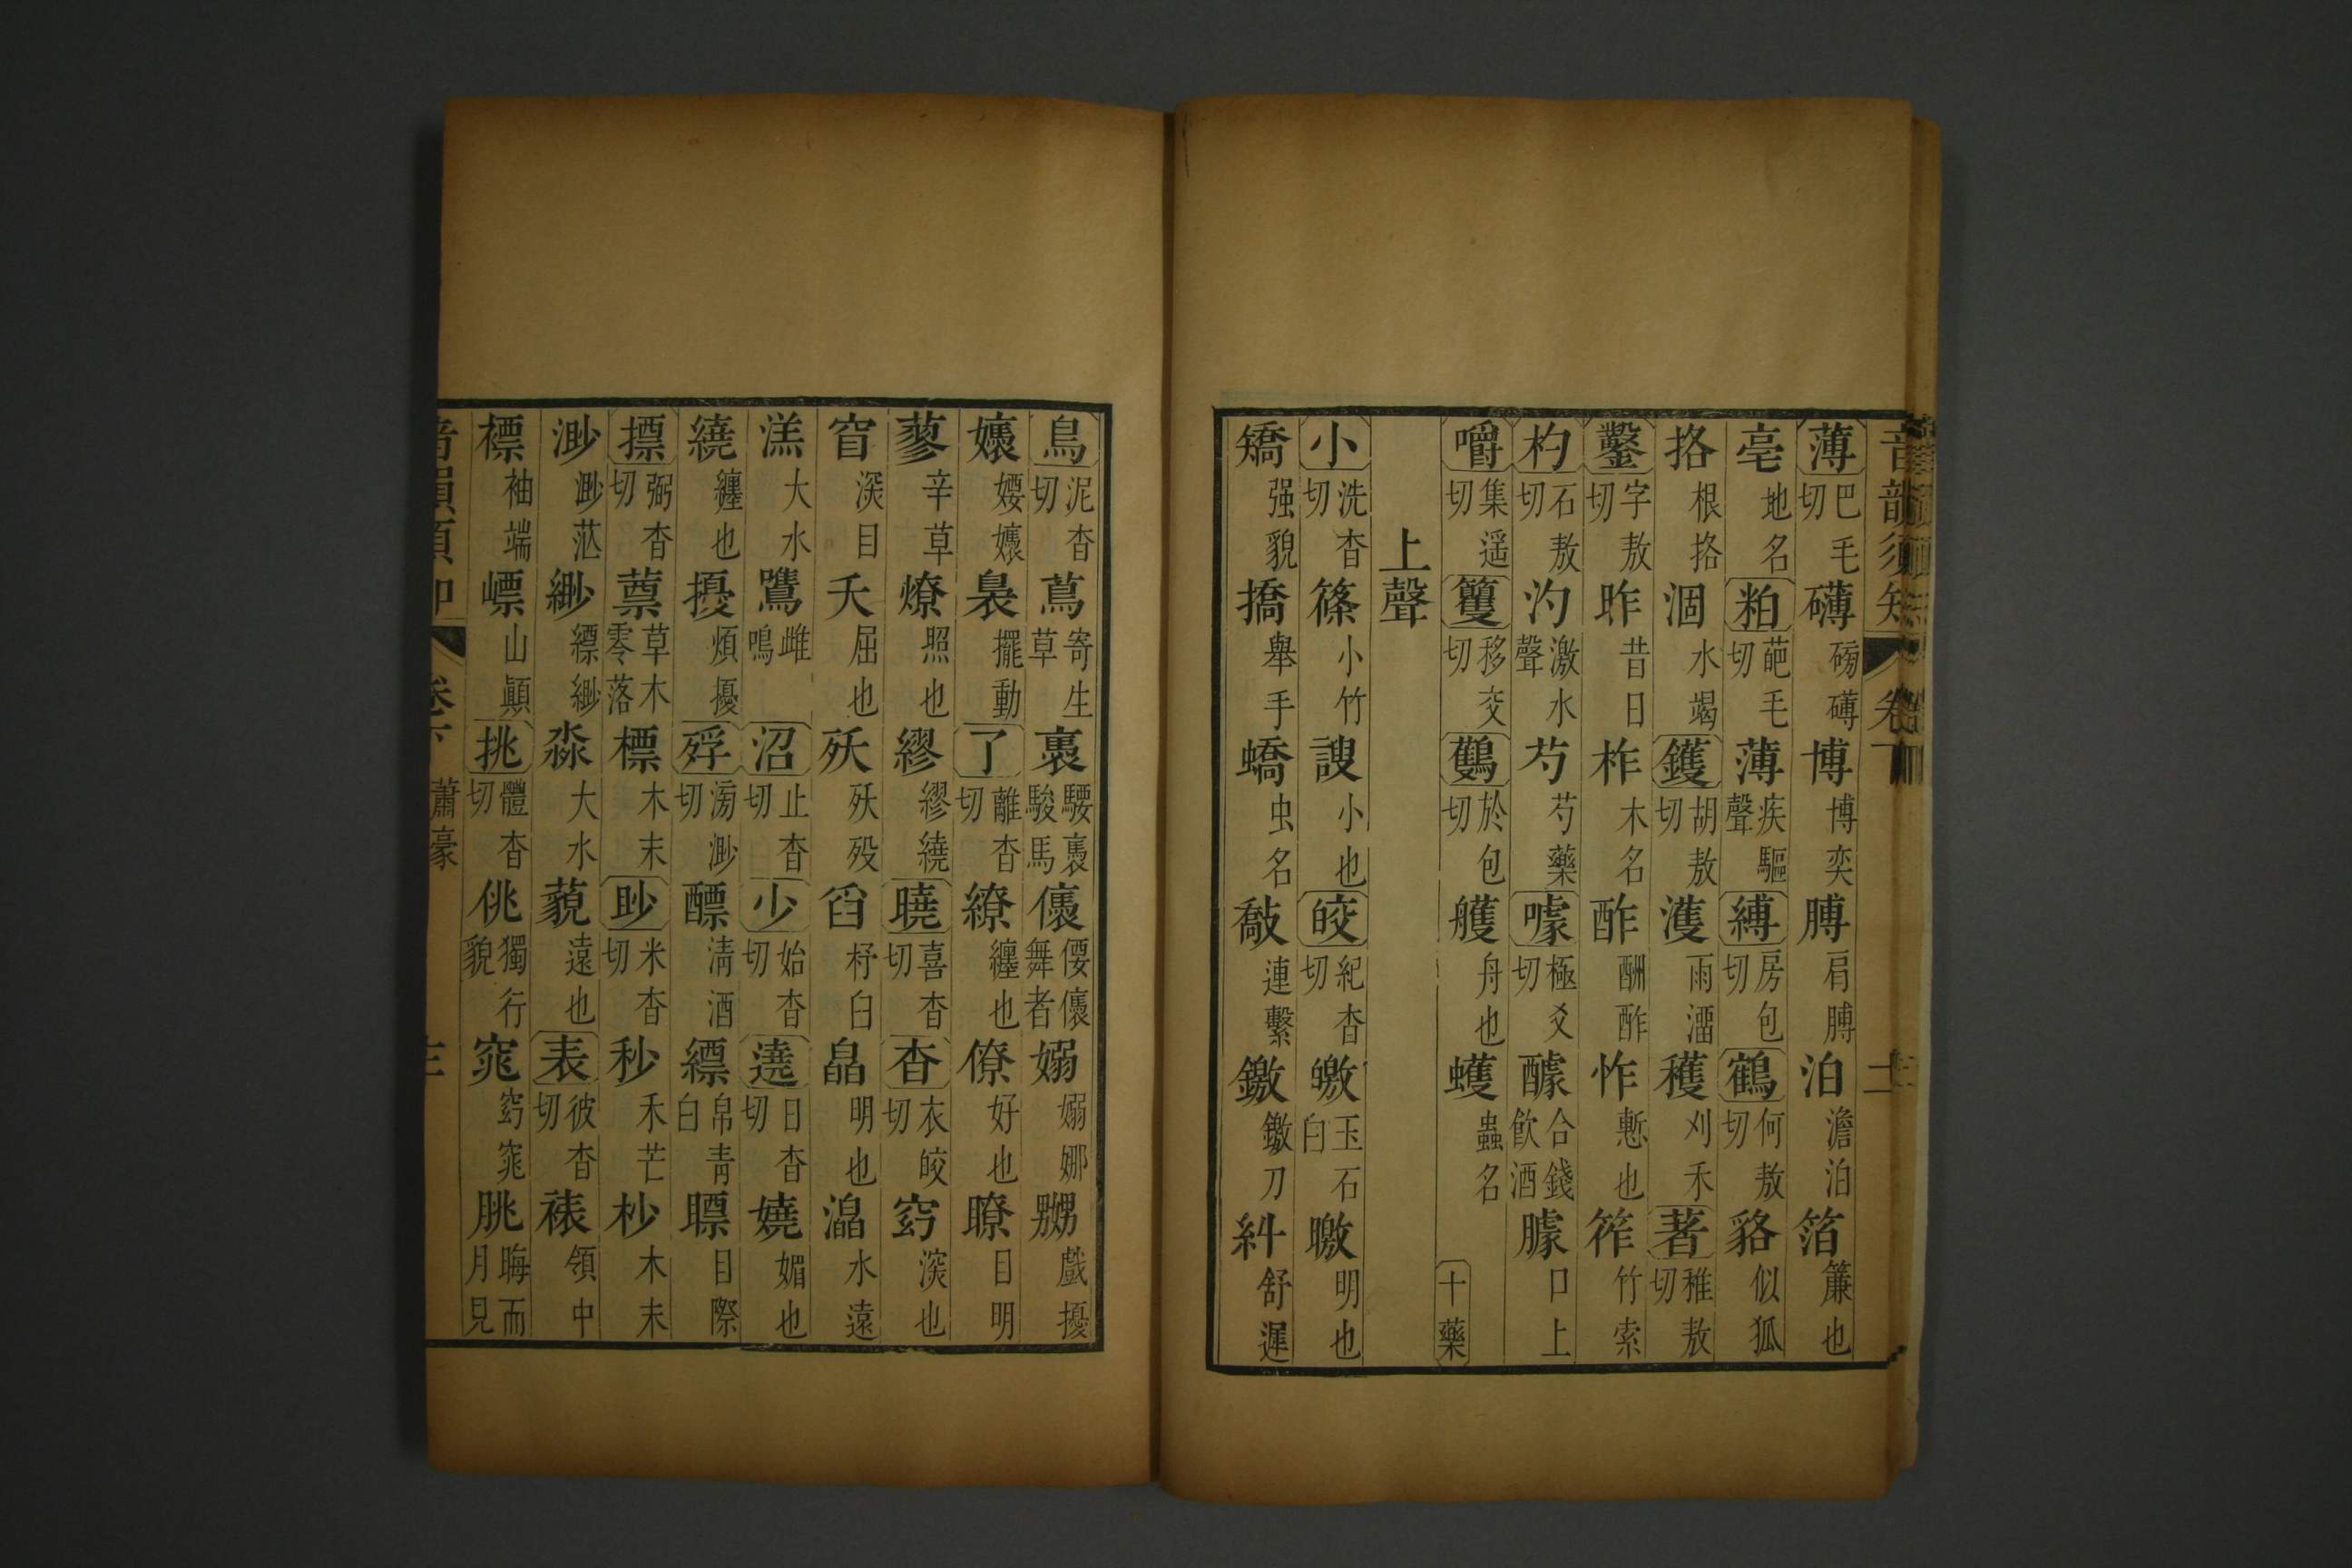 音韻須知 卷下 二
薄巴毛切礴磅礴博博奕膊肩膊泊澹泊箔簾也
亳地名粕葩毛切薄疾驅聲縛房包切鶴何敖切貉似狐
挌根挌涸水竭鑊胡敖切濩雨霤穫刈禾著稚敖切
鑿字敖切昨昔日柞木名酢酬酢怍慙也筰竹索
杓石敖切汋激水聲芍芍藥噱極爻切醵合錢飲酒臄口上
嚼集遥切籰移交切鸎於包切艧舟也蠖蟲名 十藥
上聲
小洗杳切篠小竹謏小也皎紀杳切皦玉石白曒明也
矯强貌撟舉手蟜虫名敽連繫鐓鐓刀糾舒遲
鳥泥杳切蔦寄生草裊騕裊駿馬儴偠儴舞者嫋嫋娜嬲戲擾
嬝嫈嬝㒟擺動了離杳切繚纏也僚好也瞭目明
蓼辛草燎照也繆繆繞曉喜杳切杳衣皎切窈深也
窅深目夭屈也殀殀殁舀杼臼皛明也灟水遠
渼大水鷕雌鳴沼止杳切少始杳切遶日杳切嬈媚也
繞纏也擾煩擾殍滂渺切醥淸酒縹帛青白瞟目際
摽弼杳切蔈草木零落標木末眇米杳切秒禾芒杪木末
渺渺茫緲縹緲淼大水藐遠也表彼杳切裱領中
褾袖端嶛山顚挑體杳切佻獨行貌窕窈窕朓晦而月見
音韻須知 卷下 蕭豪